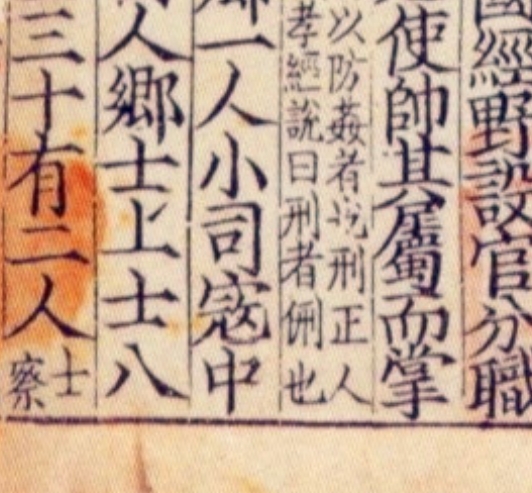 國經野設官分職
使帥其屬而掌
以防姦者刑正人
孝經說曰刑者侀也
卿一人小司寇中
人鄉士上士八
三十有二人
士
察